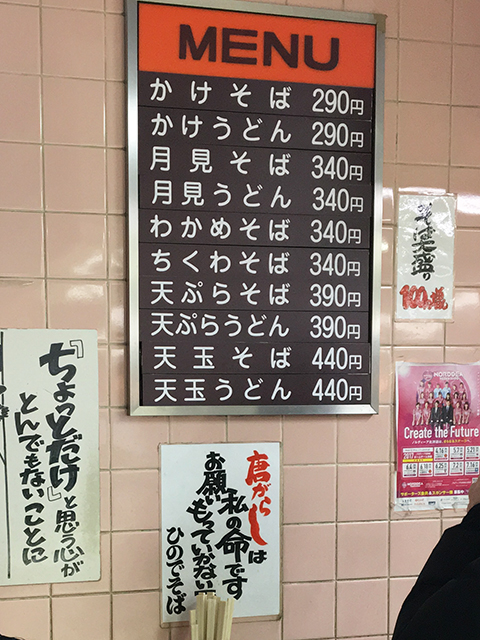 MENU
かけそば 290円
かけうどん 290円
月見そば 340円
月見うどん 340円
わかめそば 340円
ちくわそば 340円
天ぷらそば 390円
天ぷらうどん 390円
天玉そば 440円
天玉うどん 440円
そば大盛り
100円増
『ちょっとだけ』と思う心が
とんでもないことに
唐がらしは
私の命です
お願いもっていかない
ひのでそば
NONODGE
Create the Future
2017